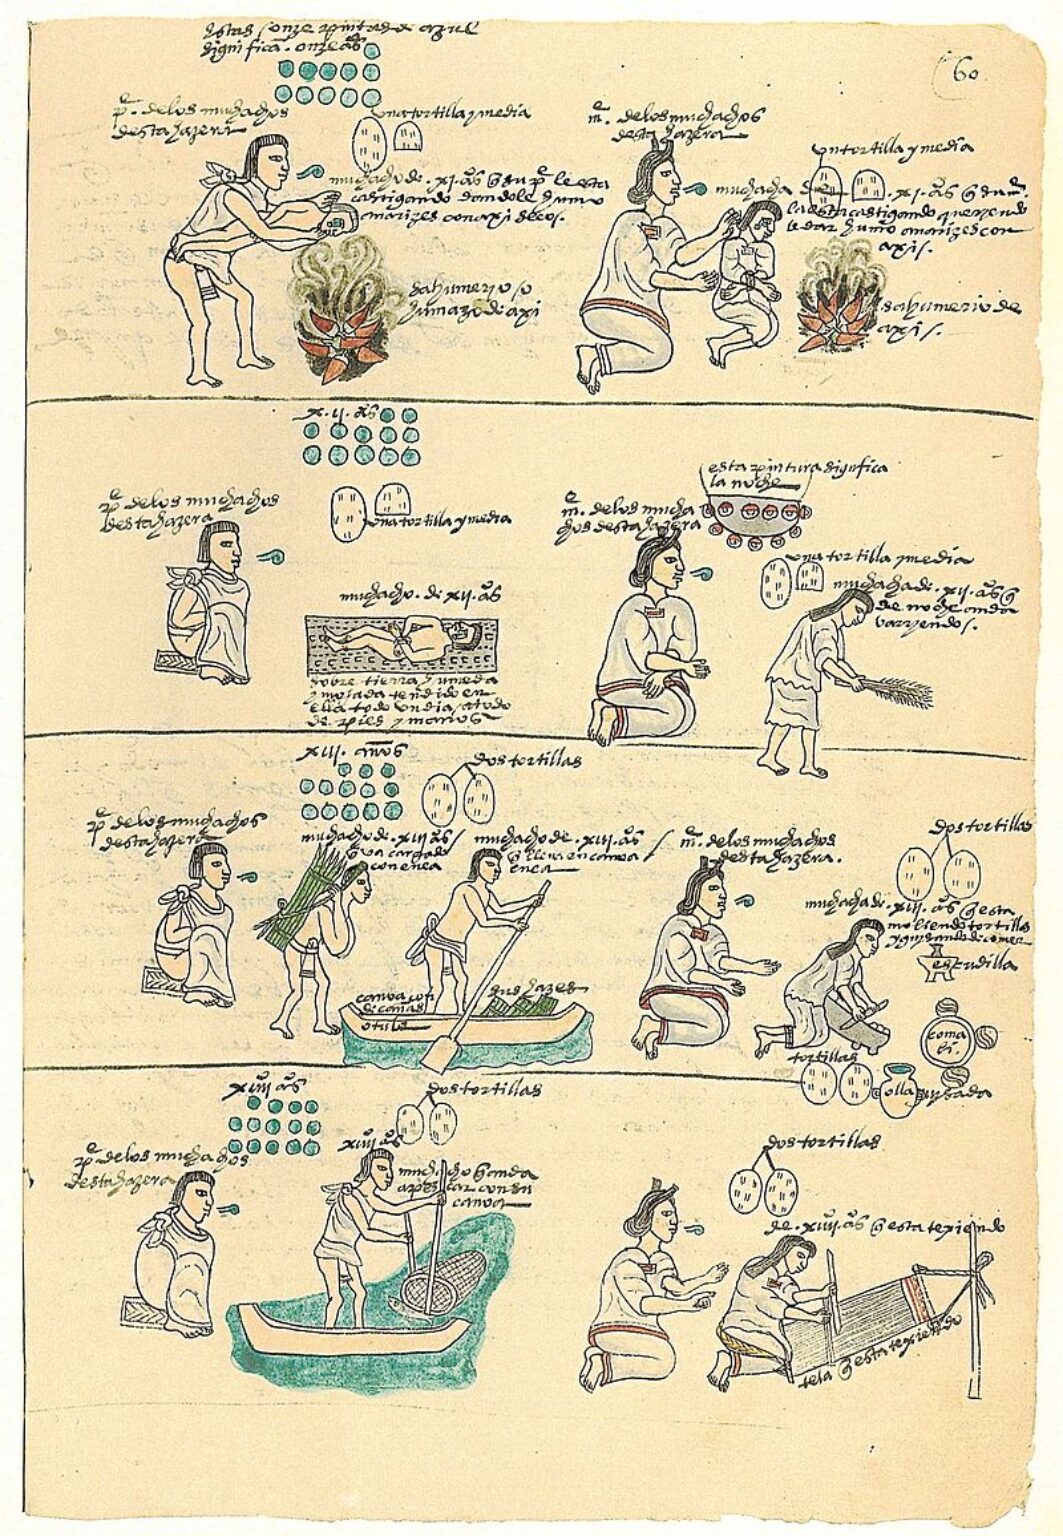 estas onze pintas de azul
significā. onze aºs
60
pº. de los muchachos
desta hazera
una tortilla y media
muchacho de .xi. aºs q̄ su pº le esta
castigando dandole humo
a narizes con axi secos.
sahumerio o
humazo de axi
mº. de los muchachos
desta hazera
un tortilla y media
muchacha de .xi. aºs q̄ su mº.
la esta castigando queriendo
le dar humo a narizes con
axi.
sahumerio de
axi.
x.ii. aºs
pº de los muchachos
desta hazera
una tortilla y media
muchacho de xii. aºs
sobre tierra humeda
y mojada tendido en
ella todo un dia atado
de pies y manos
esta pintura significa
la noche
mº. de los mucha
chos desta hazera
una tortilla y media
muchacha de .xii. aºs q̄
de noche anda
varriendo.
xiii. años
dos tortillas
pº de los muchachos
desta hazera
muchacho de .xiii. aºs
q̄ va cargado
con enea
muchacho de .xiii. aºs
q̄ lleva en canoa
enea
canoa con
sus hazes
mº. de los muchachos
desta hazera.
dos tortillas
muchacha de .xiii. aºs q̄ esta
moliendo tortillas
y guisando de comer
escudilla
comali.
tortillas
olla guisada
xiiii aºs
dos tortillas
pº de los muchachos
desta hazera
xiiii aºs
muchacho q̄ anda
a pescar con su
canoa
dos tortillas
de .xiiii. aºs q̄ esta texiendo
tela q̄ esta texiendo